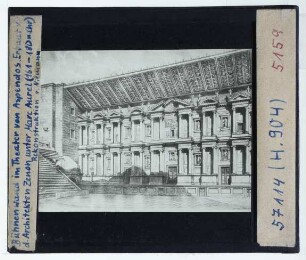 Bühnenwand im Theater von Aspendos. Erbaut v.
d. Architekten Zenon, unter Marc Aurel (161-180 n Chr)
Rekonstruktion v.
5159
57114 (H. 904)